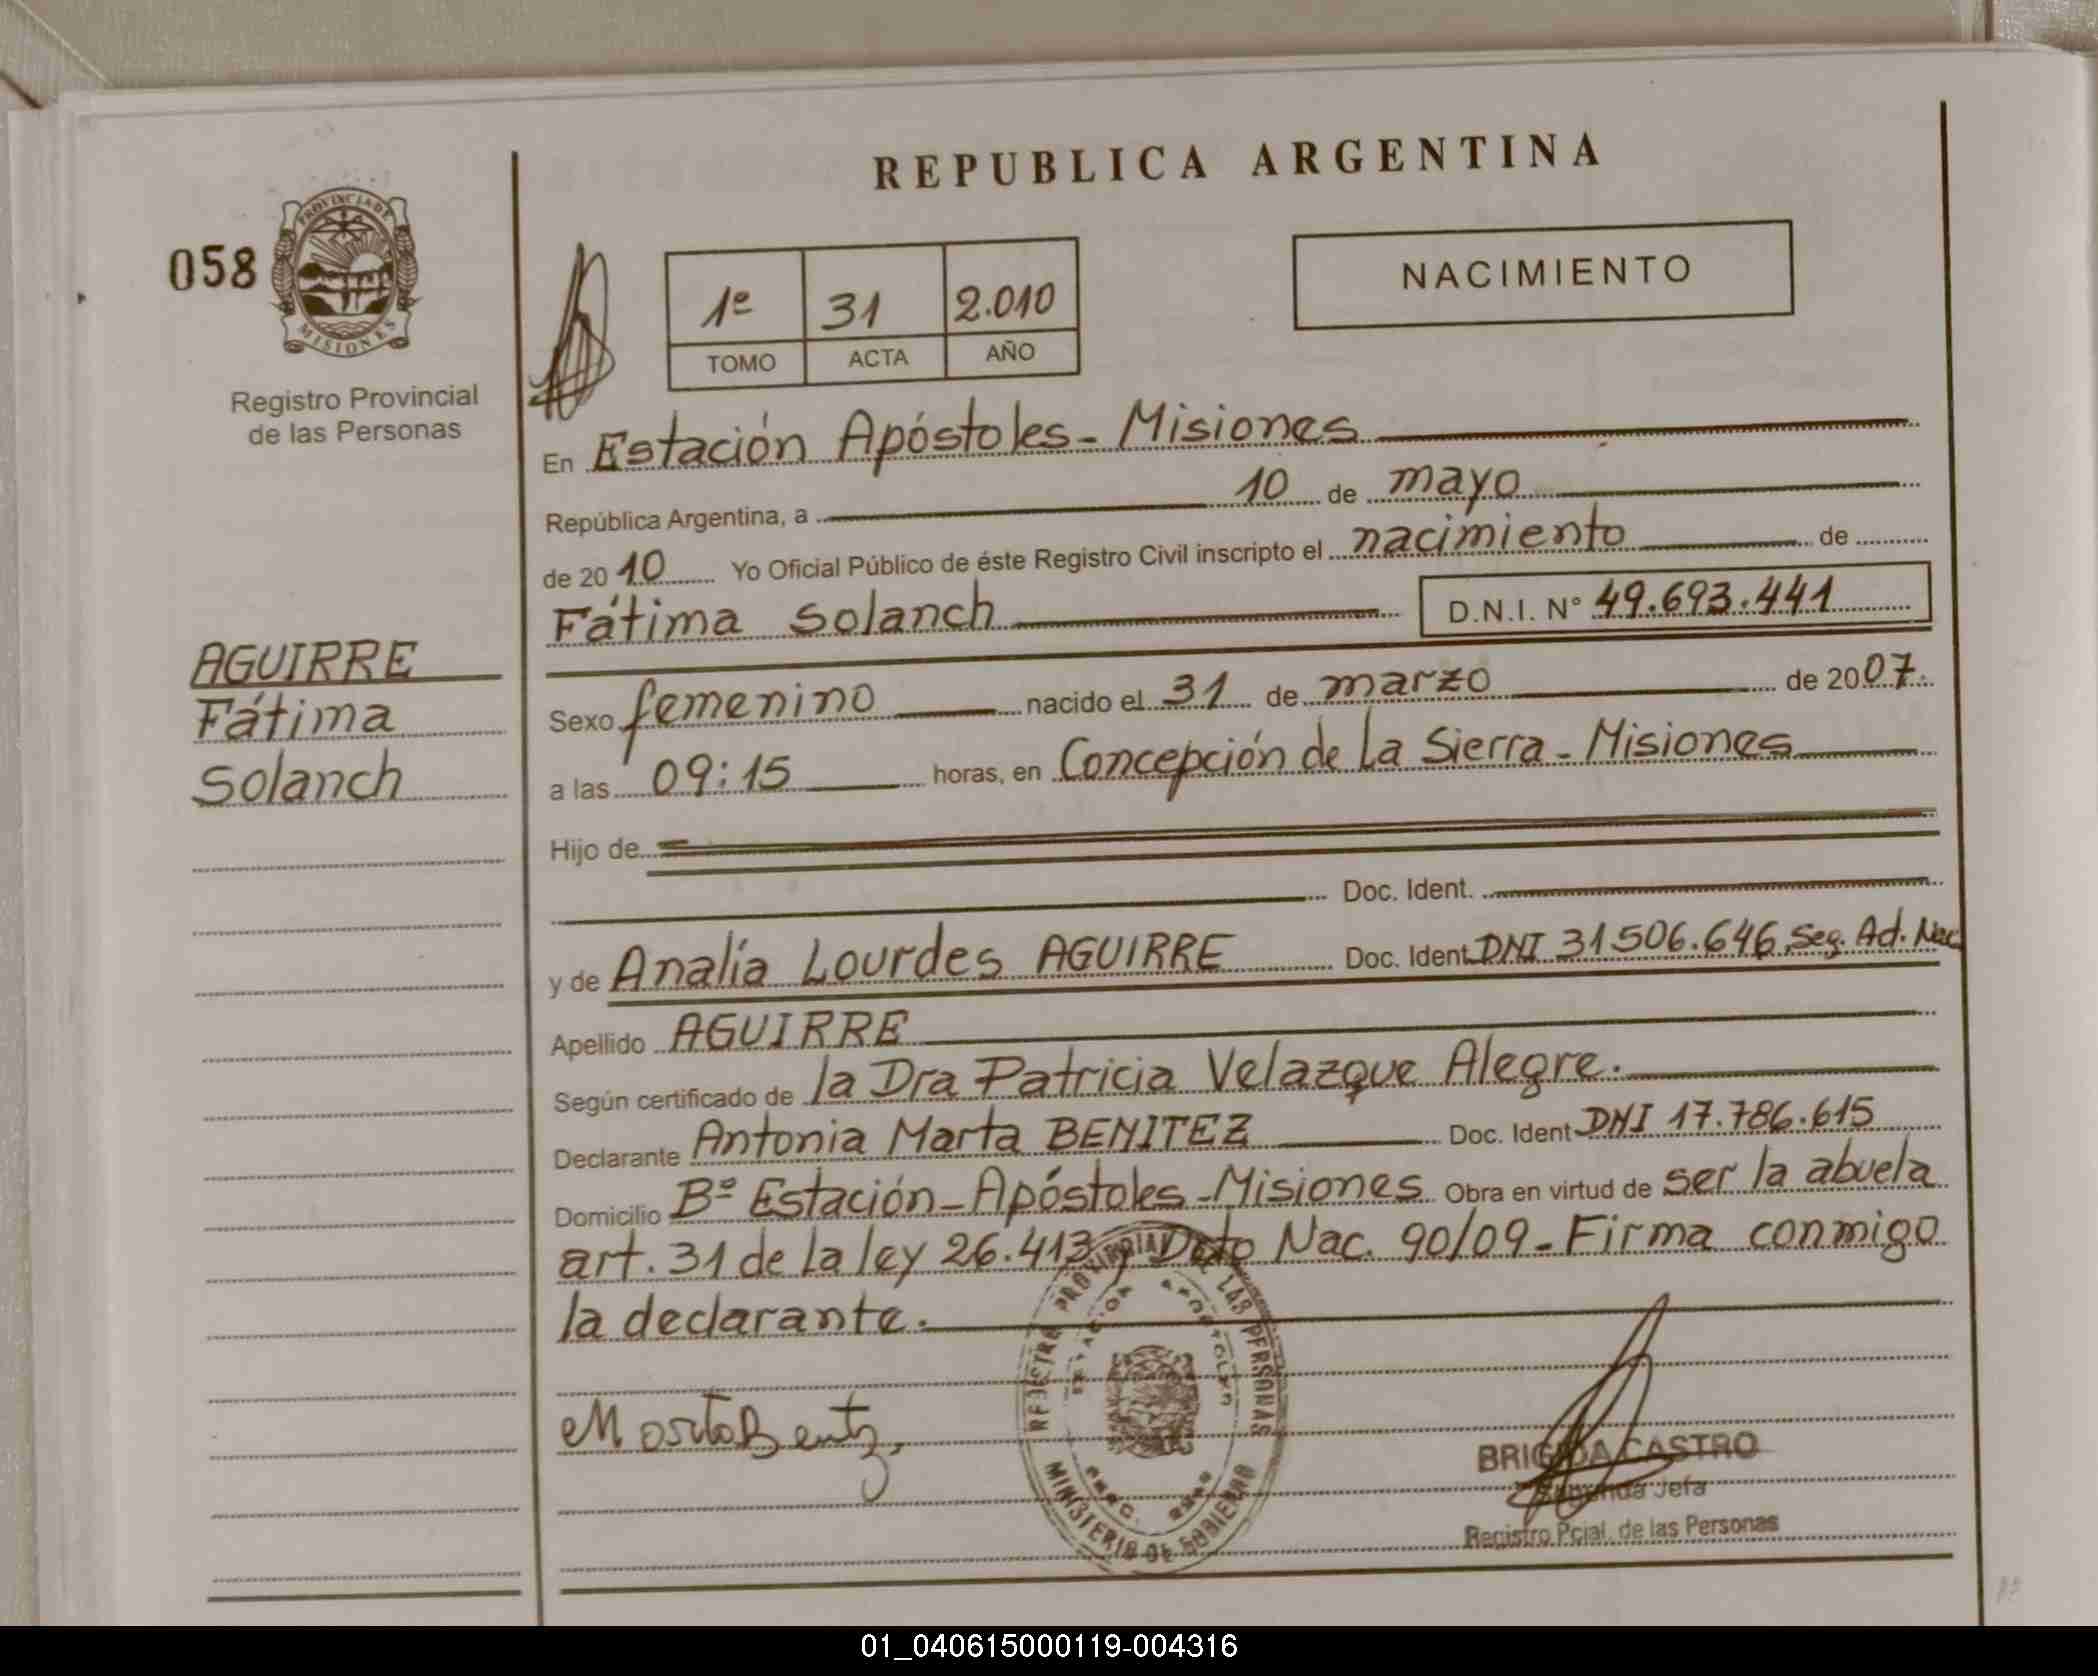 REPUBLICA ARGENTINA
058
PROVINCIA DE
MISIONES
Registro Provincial
de las Personas
1º 31 2.010
TOMO ACTA AÑO
NACIMIENTO
En Estación Apóstoles - Misiones
República Argentina, a 10 de mayo
de 2010 Yo Oficial Público de éste Registro Civil inscripto el nacimiento de
Fátima Solanch D.N.I. N° 49.693.441
AGUIRRE
Fátima
Solanch
Sexo femenino nacido el 31 de marzo de 2007.
a las 09:15 horas, en Concepción de La Sierra - Misiones
Hijo de
Doc. Ident.
y de Analía Lourdes AGUIRRE Doc. Ident. DNI 31.506.646, Seg. Ad. Nac
Apellido AGUIRRE
Según certificado de la Dra Patricia Velazque Alegre.
Declarante Antonia Marta BENITEZ Doc. Ident DNI 17.786.615
Domicilio Bº Estación - Apóstoles - Misiones Obra en virtud de ser la abuela
art. 31 de la ley 26.413, Dcto Nac. 90/09 - Firma conmigo
la declarante.
REGISTRO PROVINCIAL DE LAS PERSONAS
ESTACION APOSTOLES
MINISTERIO DE GOBIERNO
BRIGIDA CASTRO
Segunda Jefa
Registro Pcial. de las Personas
01_040615000119-004316